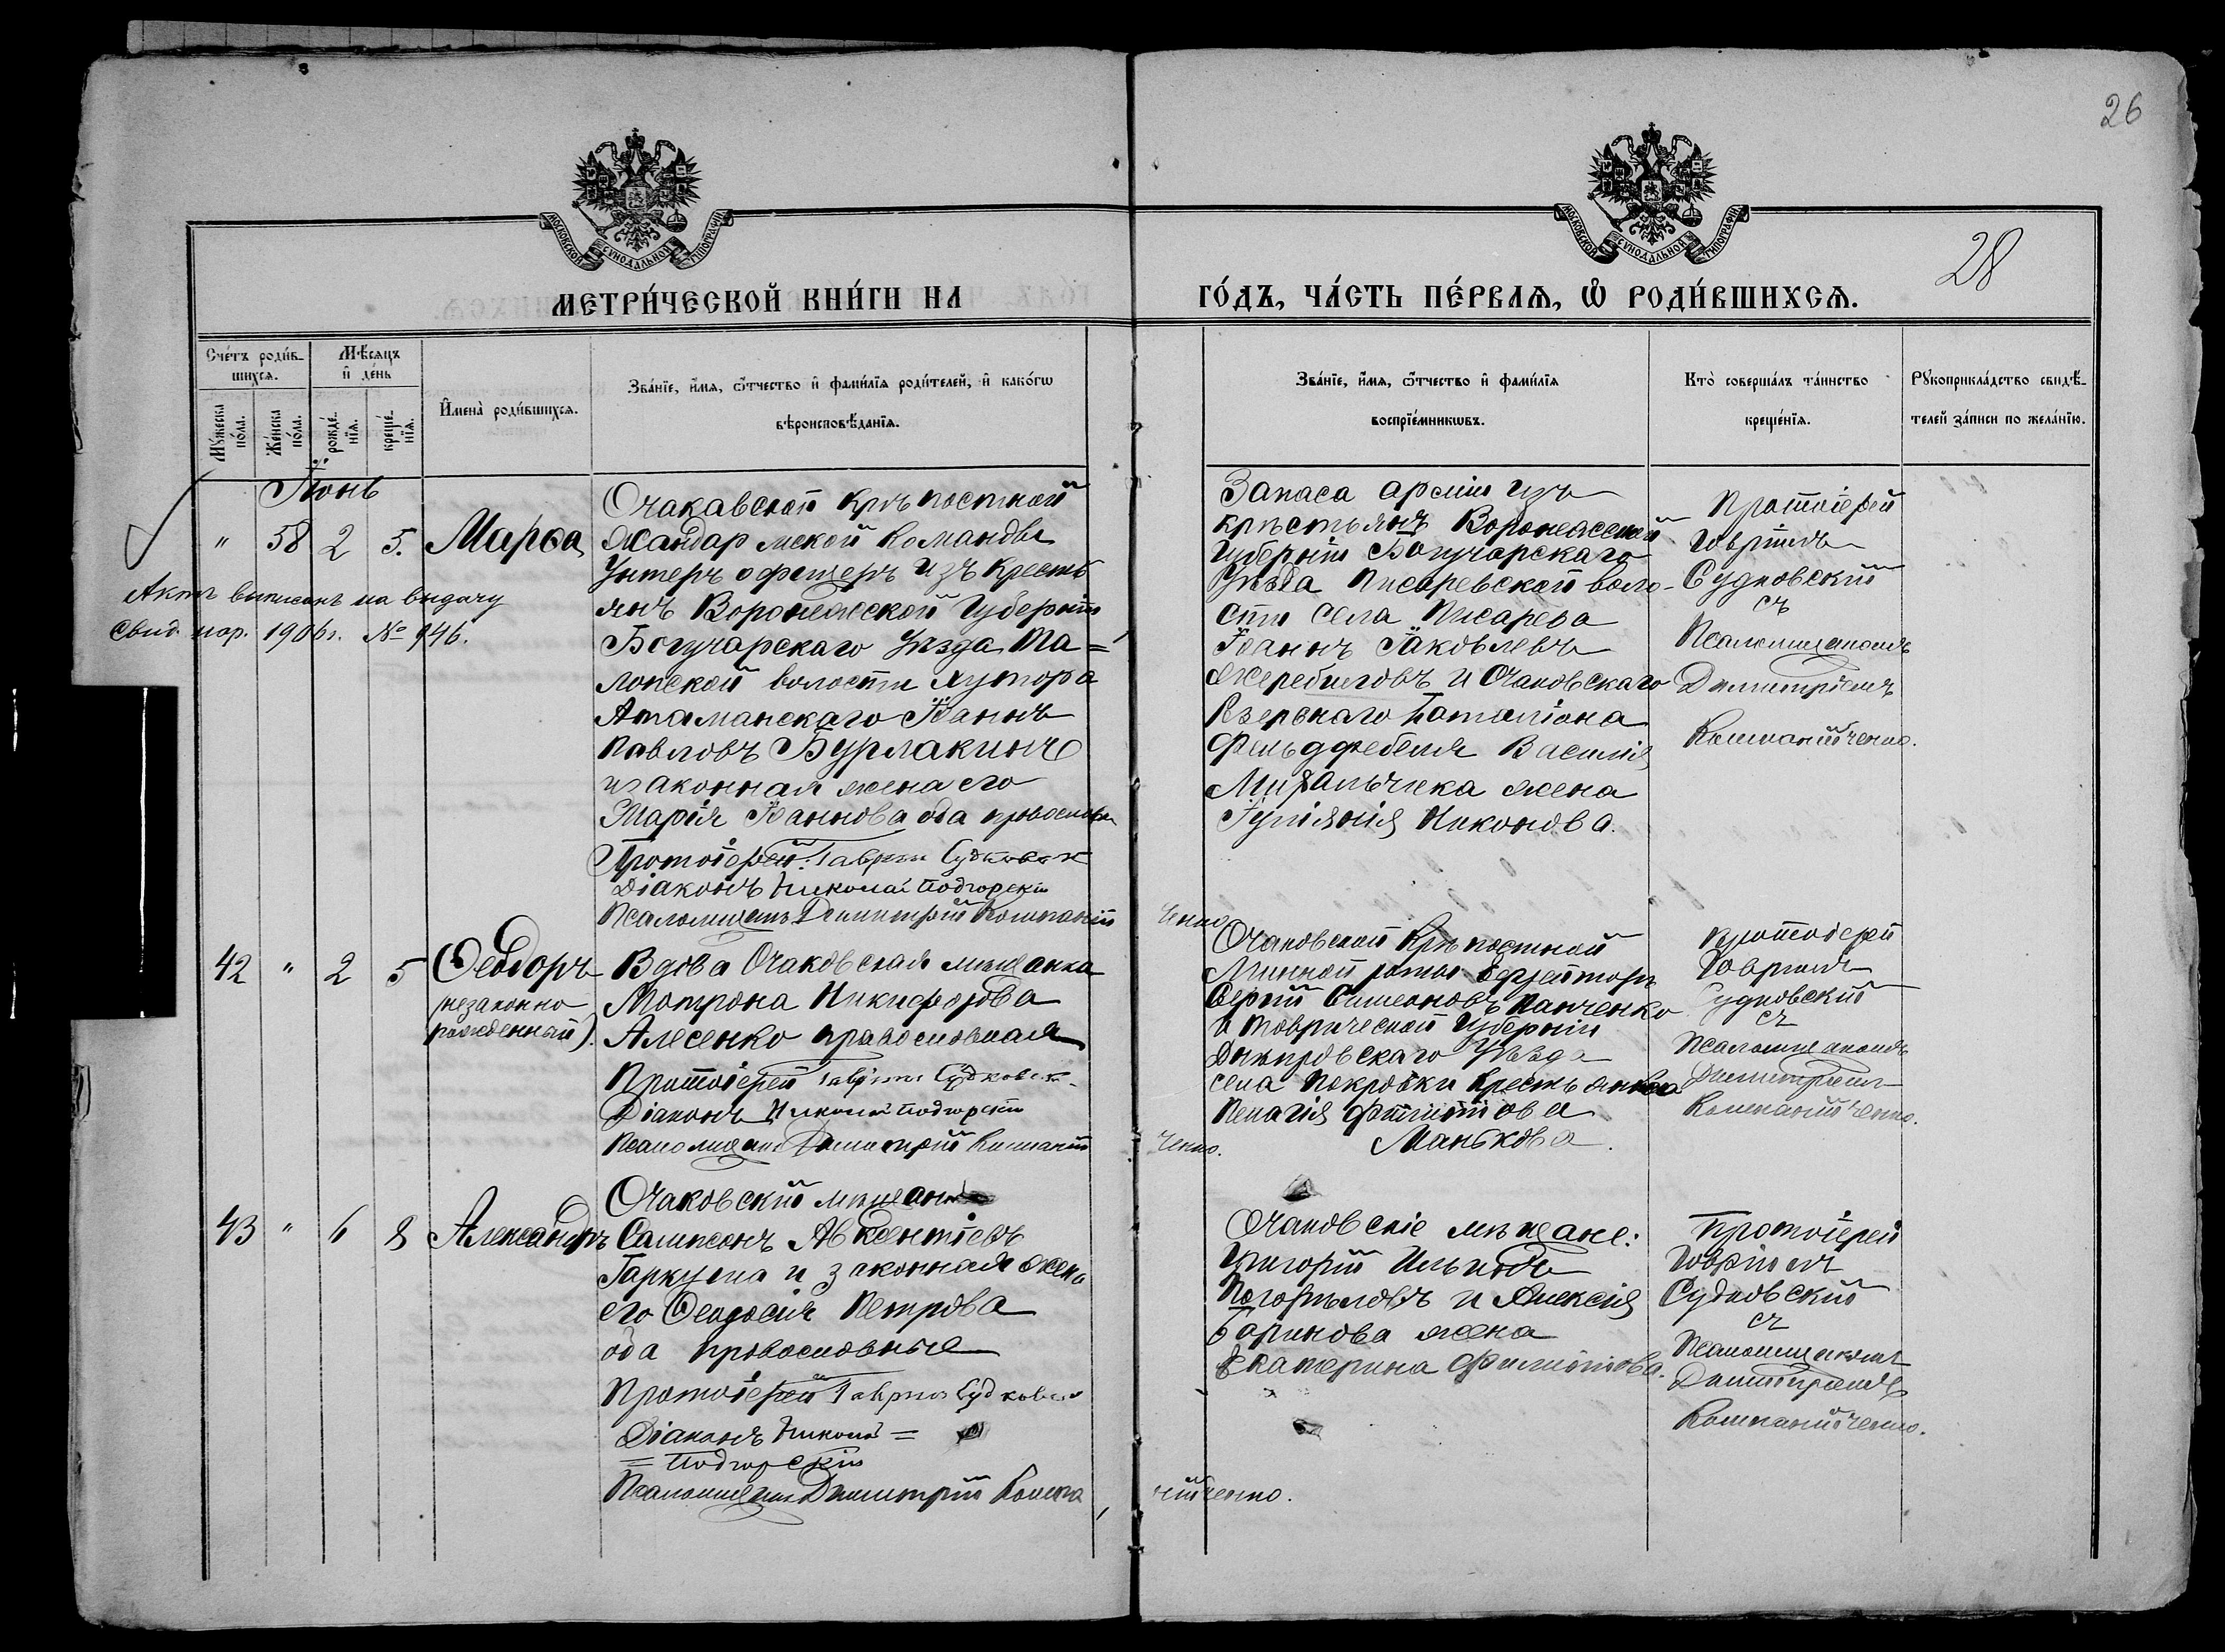 26
28
МОСКОВСКОЙ СѴНОДАЛЬНОЙ ТИПОГРАФІИ
МОСКОВСКОЙ СѴНОДАЛЬНОЙ ТИПОГРАФІИ
МЕТРИ́ЧЕСКОЙ КНИ́ГИ НА
ГО́ДЪ, ЧА́СТЬ ПЕ́РВАЯ, Ѡ҆ РОДИ́ВШИХСЯ.
Сче́тъ роди́в-
шихся.
Мꙋ́жеска по́ла.
Же́нска по́ла.
Мѣ́сяцъ
и҆ де́нь
рожде́-
нїя.
креще́-
нїя.
И҆мена̀ роди́вшихся.
Зва́нїе, и҆́мя, ѻ҆́тчество и҆ фами́лїя роди́телей, и҆ како́гѡ
вѣроисповѣ́данїя.
Зва́нїе, и҆́мя, ѻ҆́тчество и҆ фами́лїя
воспрїе́мникѡвъ.
Кто̀ соверша́лъ та́инство
креще́нїя.
Рꙋкоприкла́дство свидѣ́-
телей за́писи по жела́нїю.
Іюнь
" 58 2 5. Марѳа
Актъ выписанъ на выдачу
свид. 1906 г. № 946.
Очаковской крѣпостной
жандармской команды
Унтеръ офицеръ изъ кресть
янъ Воронежской Губерніи
Богучарскаго Уѣзда Та=
лонской волости хутора
Атаманскаго Іоаннъ
Павловъ Бурлакинъ
и законная жена его
Марія Іоаннова оба православн
Протоіерей Гавріилъ Судковскій
Діаконъ Николай Подгорскій
Псаломщикъ Димитрій Компаній
ченко
Запаса арміи изъ
крестьянъ Воронежской
Губерніи Богучарскаго
Уѣзда Писаревской воло-
сти села Писарева
Іоаннъ Іаковлевъ
Жеребцовъ и Очаковскаго
Резервнаго баталіона
Фельдфебеля Василія
Михальчика жена
Іуліанія Никонова.
Протоіерей
Гавріилъ
Судковскій
съ
Псаломщикомъ
Димитріемъ
Компанійченко.
42 " 2 5 Ѳеодоръ
(незаконно
рожденный).
Вдова Очаковская мѣщанка
Мотрона Никифорова
Алесенко православная
Протоіерей Гавріилъ Судковск
Діаконъ Николай Подгорскій
Псаломщикъ Димитрій Компаній
ченко.
Очаковской Крѣпостной
Минной роты ефрейторъ
Сергій Симеоновъ Панченко
и Таврической Губерніи
Днѣпровскаго Уѣзда
села Покровки крестьянка
Пелагія Филиппова
Манькова.
Протоіерей
Гавріилъ
Судковскій
съ
Псаломщикомъ
Димитріемъ
Компанійченко.
43 " 6 8 Александръ
Очаковскій мѣщанинъ
Сампсонъ Авксентіевъ
Гаркуша и законная жена
его Ѳеодосія Петрова
оба православные
Протоіерей Гавріилъ Судковск
Діаконъ Николай =
= Подгорскій
Псаломщикъ Димитрій Компа
нійченко.
Очаковскіе мѣщане:
Григорій Ильинъ
Погорѣловъ и Алексія
Баринова жена
Екатерина Филиппова.
Протоіерей
Гавріилъ
Судковскій
съ
Псаломщикомъ
Димитріемъ
Компанійченко.